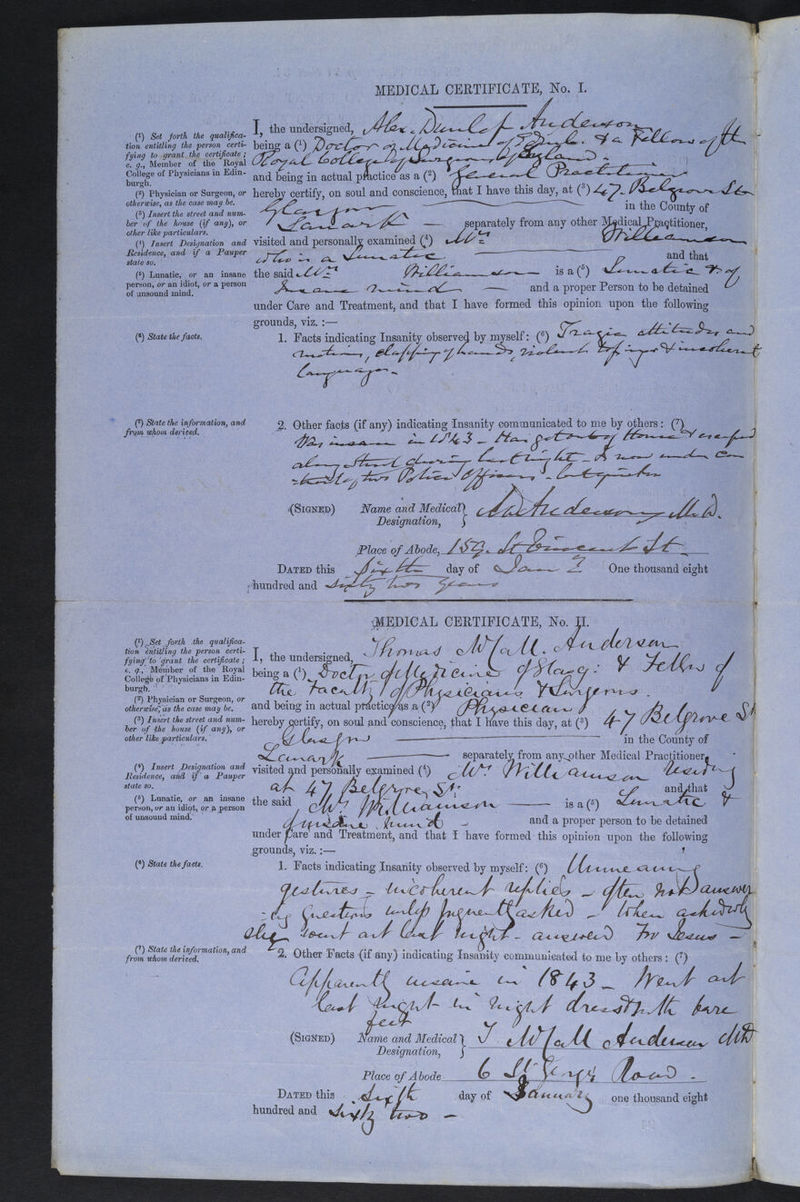 MEDICAL CERTIFICATE, No. I.
(¹) Set forth the qualifica-
tion entitling the person certi-
fying to grant the certificate;
e. g., Member of the Royal
College of Physicians in Edin-
burgh.
(²) Physician or Surgeon, or
otherwise, as the case may be.
(³) Insert the street and num-
ber of the house (if any), or
other like particulars.
(⁴) Insert Designation and
Residence, and if a Pauper
state so.
(⁵) Lunatic, or an insane
person, or an idiot, or a person
of unsound mind.
I, the undersigned, Alex. Dunlop Anderson
being a (¹) Doctor of Medicine of Edinb. & a Fellow of the
Royal College of Surgeons of England
and being in actual practice as a (²) General Practitioner
hereby certify, on soul and conscience, that I have this day, at (³) 47. Belgrove Str
Glasgow in the County of
Lanark separately from any other Medical Practitioner,
visited and personally examined (⁴) Mrs Williamson
who is a Lunatic and that
the said Mrs Williamson is a (⁵) Lunatic & of
Insane mind and a proper Person to be detained
under Care and Treatment, and that I have formed this opinion upon the following
grounds, viz.:—
(⁶) State the facts.
1. Facts indicating Insanity observed by myself: (⁶) Tragic attitudes and
motions, clapping of hands, violent & incoherent
language.
(⁷) State the information, and
from whom derived.
2. Other facts (if any) indicating Insanity communicated to me by others: (⁷)
Was insane in 1843 - Has got out of House & escaped
along street during last night - Is now under con
trol of two Police Officers - but quieter
(SIGNED) Name and Medical Designation, AD Anderson M.D.
Place of Abode, 159. St Vincent St
DATED this Sixth day of Jany One thousand eight
hundred and sixty two years
MEDICAL CERTIFICATE, No. II.
(¹) Set forth the qualifica-
tion entitling the person certi-
fying to grant the certificate;
e. g., Member of the Royal
College of Physicians in Edin-
burgh.
(²) Physician or Surgeon, or
otherwise, as the case may be.
(³) Insert the street and num-
ber of the house (if any), or
other like particulars.
(⁴) Insert Designation and
Residence, and if a Pauper
state so.
(⁵) Lunatic, or an insane
person, or an idiot, or a person
of unsound mind.
I, the undersigned, Thomas McCall Anderson
being a (¹) Doctor of Medicine of Glasg: & Fellow of
the Faculty of Physicians & Surgeons.
and being in actual practice as a (²) Physician
hereby certify, on soul and conscience, that I have this day, at (³) 47 Belgrove St
Glasgow in the County of
Lanark separately from any other Medical Practitioner,
visited and personally examined (⁴) Mrs Williamson residing
at 47 Belgrove St. and that
the said Mrs Williamson is a (⁵) Lunatic &
of insane mind and a proper person to be detained
under Care and Treatment, and that I have formed this opinion upon the following
grounds, viz.:—
(⁶) State the facts.
1. Facts indicating Insanity observed by myself: (⁶) Unmeaning
gestures - incoherent replies - often not answer
-ing questions unless frequently asked - When asked why
she went out last night - answered For Jesus -
(⁷) State the information, and
from whom derived.
2. Other Facts (if any) indicating Insanity communicated to me by others: (⁷)
Apparently insane in 1843 - Went out
last night in night dress with bare
feet
(SIGNED) Name and Medical Designation, T McCall Anderson MD
Place of Abode 6 St George's Road.
DATED this Sixth day of January one thousand eight
hundred and Sixty two -